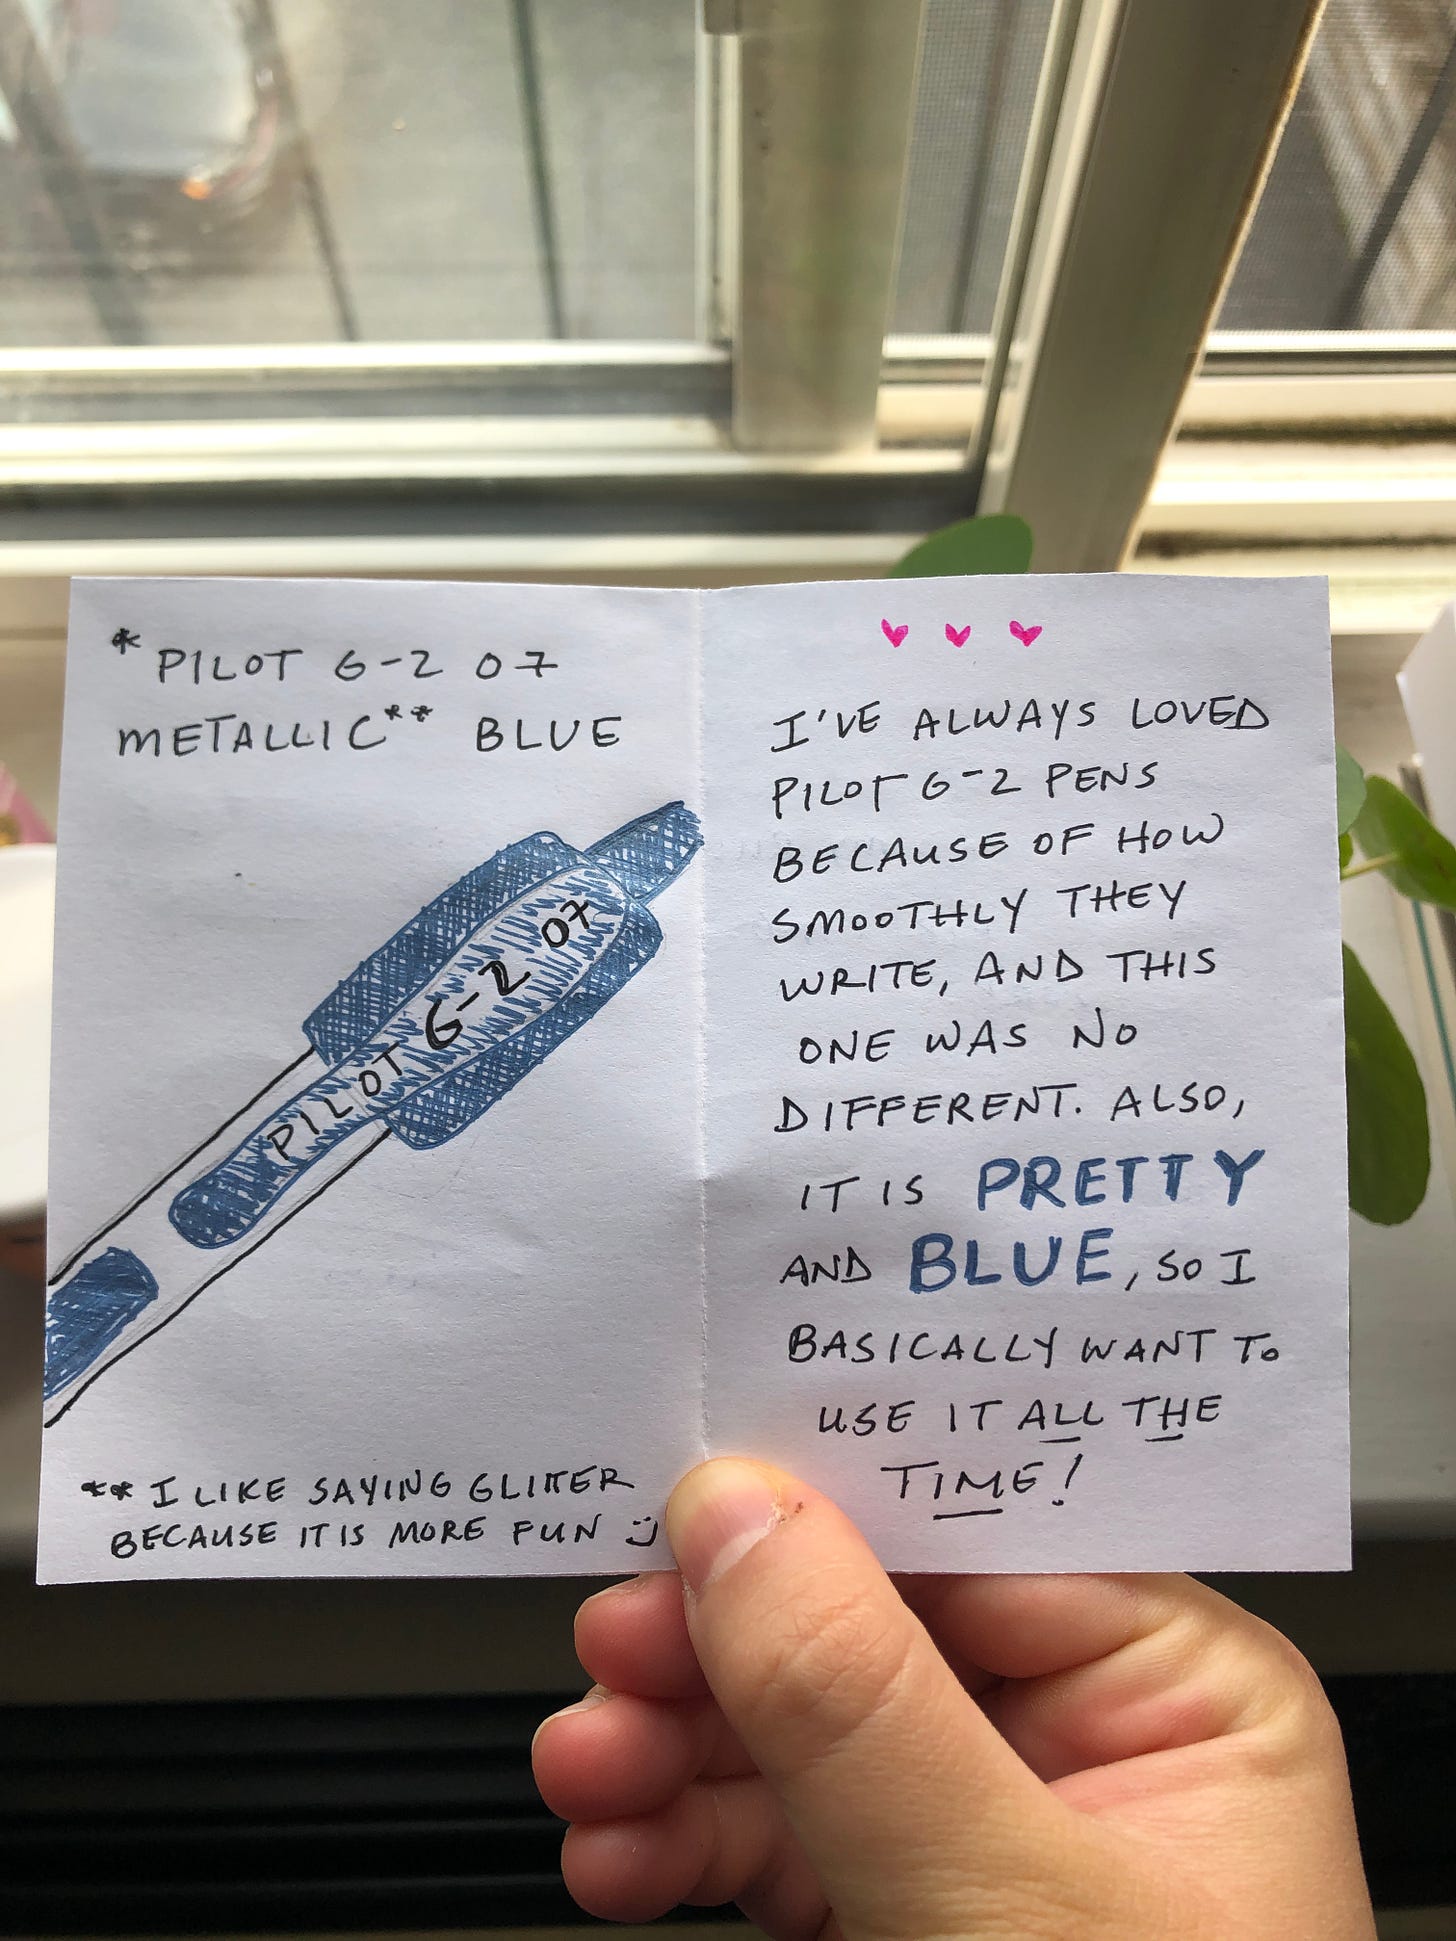 * PILOT G-2 07
METALLIC** BLUE
PILOT G-2 07
** I LIKE SAYING GLITTER
BECAUSE IT IS MORE FUN :)
I'VE ALWAYS LOVED
PILOT G-2 PENS
BECAUSE OF HOW
SMOOTHLY THEY
WRITE, AND THIS
ONE WAS NO
DIFFERENT. ALSO,
IT IS PRETTY
AND BLUE, SO I
BASICALLY WANT TO
USE IT ALL THE
TIME!